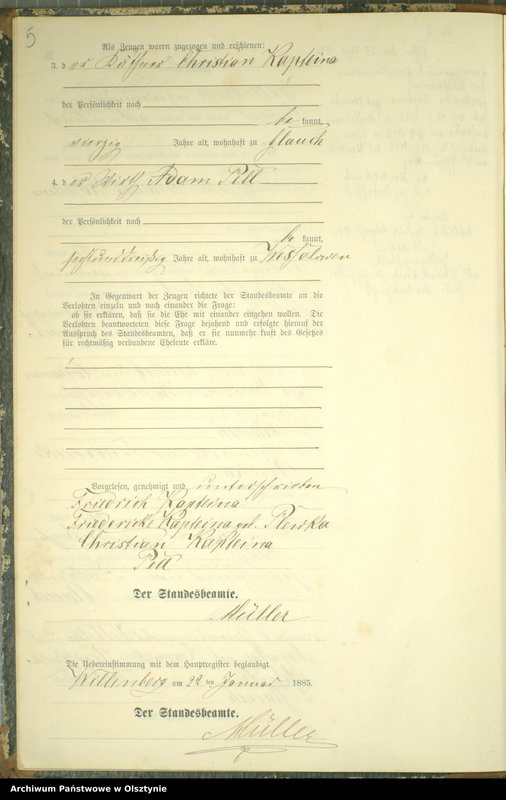 5
Als Zeugen waren zugezogen und erschienen:
3. der Käthner Christian Kapteina
der Persönlichkeit nach
be kannt,
vierzig Jahre alt, wohnhaft zu Glauch
4. der Wirth Adam Pell
der Persönlichkeit nach
be kannt,
sechsunddreißig Jahre alt, wohnhaft zu
In Gegenwart der Zeugen richtete der Standesbeamte an die
Verlobten einzeln und nach einander die Frage:
ob sie erklären, daß sie die Ehe mit einander eingehen wollen. Die
Verlobten beantworteten diese Frage bejahend und erfolgte hierauf der
Ausspruch des Standesbeamten, daß er sie nunmehr kraft des Gesetzes
für rechtmäßig verbundene Eheleute erkläre.
Vorgelesen, genehmigt und unterschrieben
Friedrich Kapteina
Friedericke Kapteina geb. Plewka
Christian Kapteina
Pell
Der Standesbeamte.
Müller
Die Uebereinstimmung mit dem Hauptregister beglaubigt.
Willenberg am 22 ten Januar 1885.
Der Standesbeamte.
Müller
Archiwum Państwowe w Olsztynie